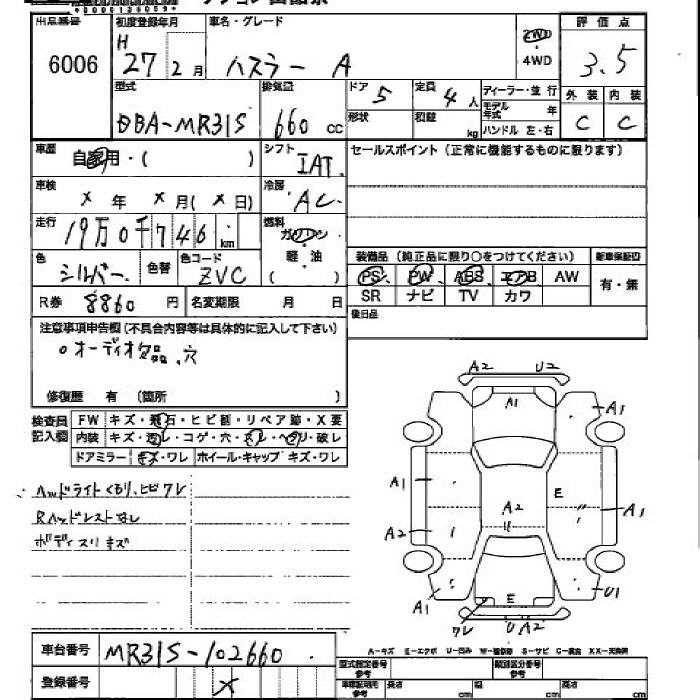 出品番号 初度登録年月 車名・グレード 評価点
6006 H 27 2月 ハスラー A 2WD ・ 4WD 3.5
型式 排気量 ドア 5 定員 4人 ディーラー・並行 外装 内装
DBA-MR31S 660cc 形状 積載 kg モデル年式 年 ハンドル 左・右 C C
車歴 自家用・( ) シフト IAT セールスポイント(正常に機能するものに限ります)
車検 x年 x月(x日) 冷房 AC
走行 19万0千746km 燃料 ガソリン
軽・油
色 シルバー 色替 色コード ZVC ( )
装備品(純正品に限り○をつけてください) 新車保証書
PS PW ABS エアB AW 有・無
SR ナビ TV カワ
R券 8860円 名変期限 月 日 後日品
注意事項申告欄(不具合内容等は具体的に記入して下さい)
○オーディオ欠品、穴
修復歴 有 (箇所 )
検査員記入欄 FW キズ・飛石・ヒビ割・リペア跡・X要
内装 キズ・汚レ・コゲ・穴・スレ・ヘタリ・破レ
ドアミラー キズ・ワレ ホイール・キャップ キズ・ワレ
ヘッドライトくもり、ヒビワレ
Rヘッドレストなし
ボディスリキズ
A2 U2
A1 A1
A1 A2 E A1
A2
E
A1 ワレ U A2 U1
A-キズ E-エクボ U-凹み W-補修跡 S-サビ C-腐食 XX-交換済
車台番号 MR31S-102660
登録番号 X
型式指定番号 参考 類別区分番号 参考
車庫証明用 参考 長さ cm 幅 cm 高さ cm